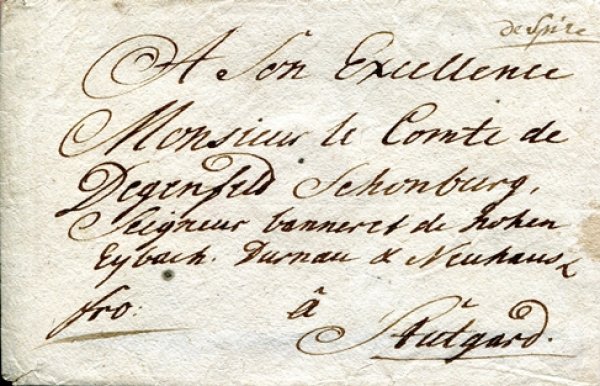 de Spire
A Son Excellence
Monsieur le Comte de
Degenfeld Schonburg,
Seigneur banneret de hohen
Eybach. Durnau & Neuhaus &
fro: â Stutgard.